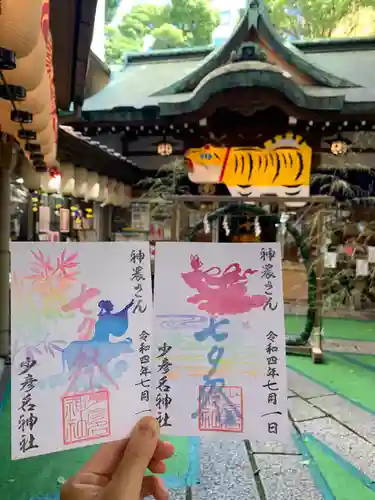 神農さん
令和四年七月一
七夕
少彦名神社
神農さん
令和四年七月一日
七夕
少彦名神社